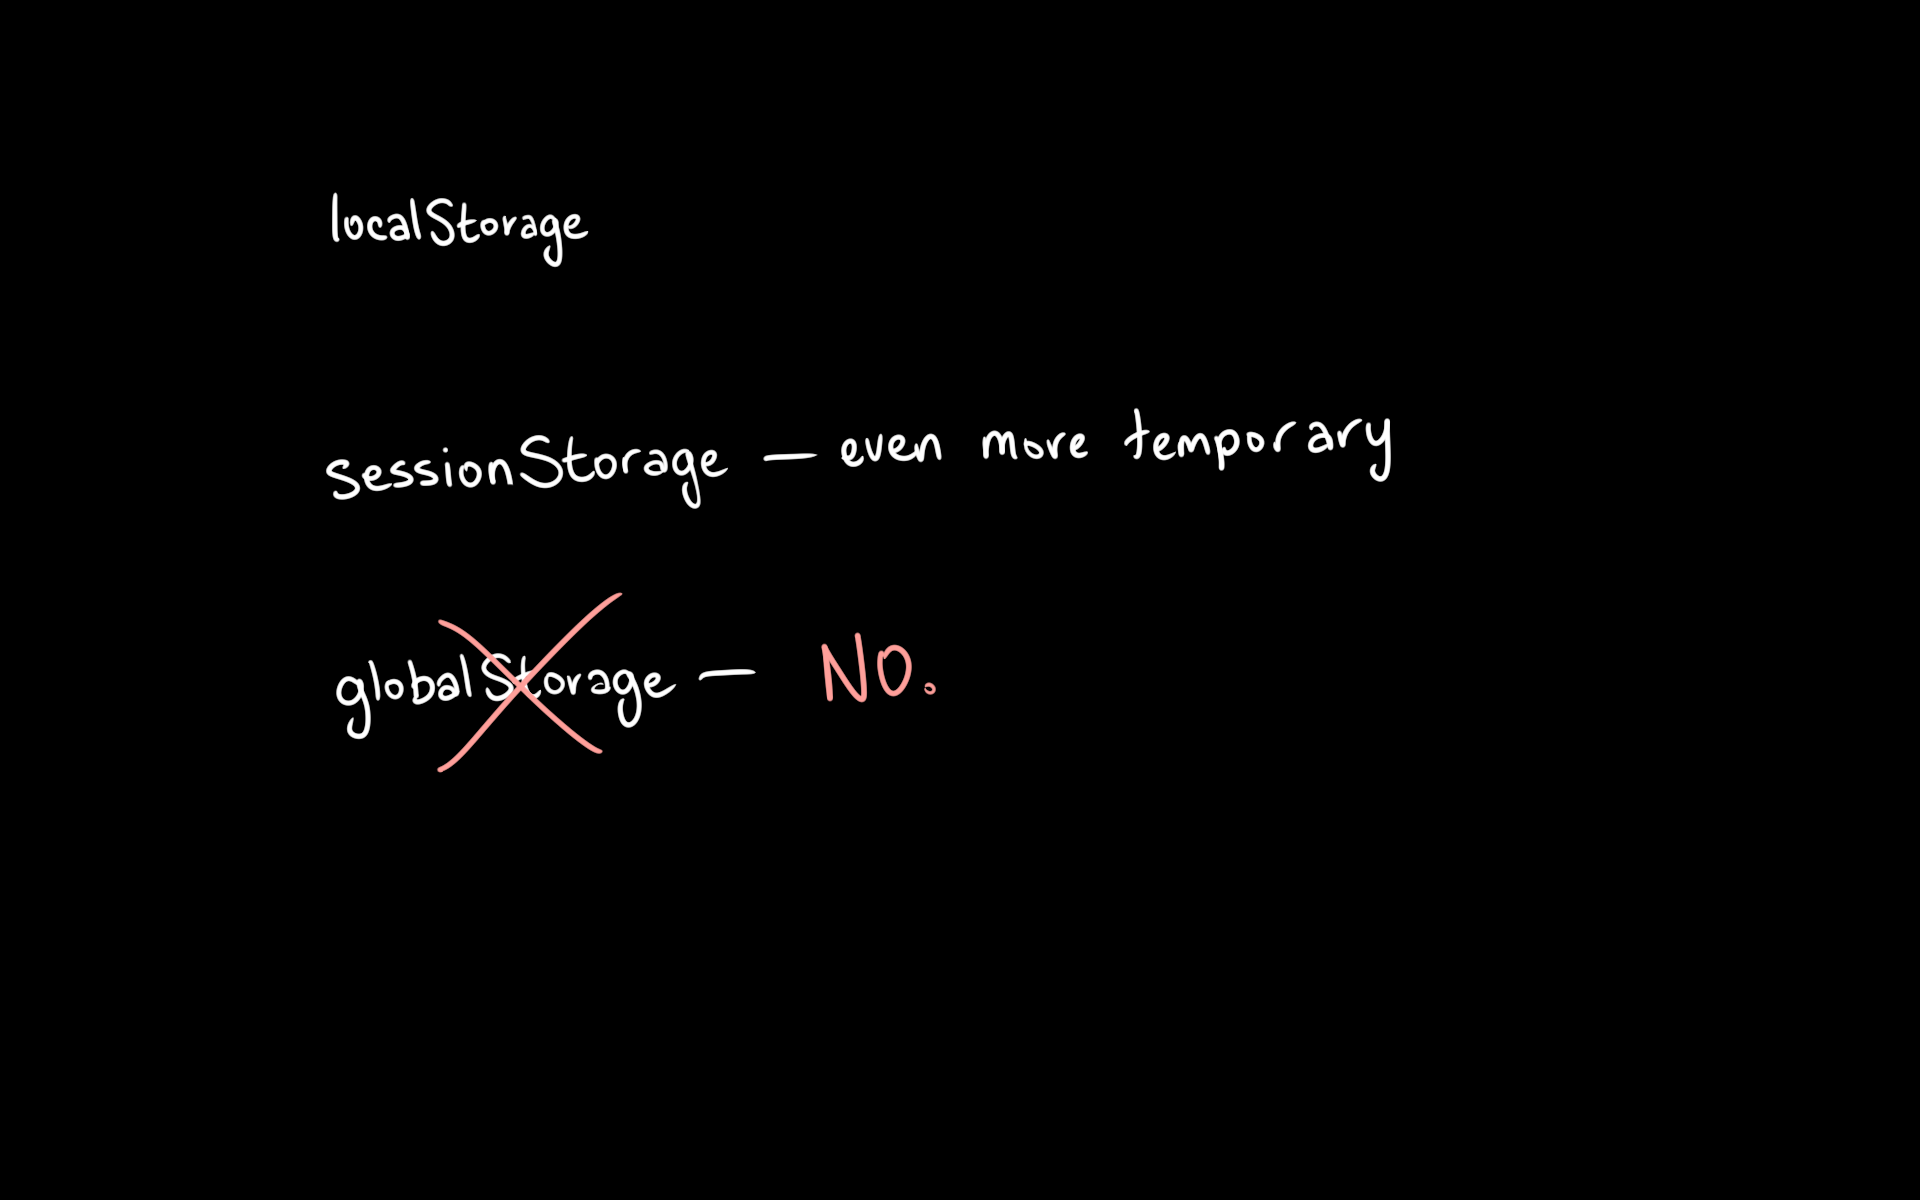 localStorage
sessionStorage — even more temporary
globalStorage — NO.